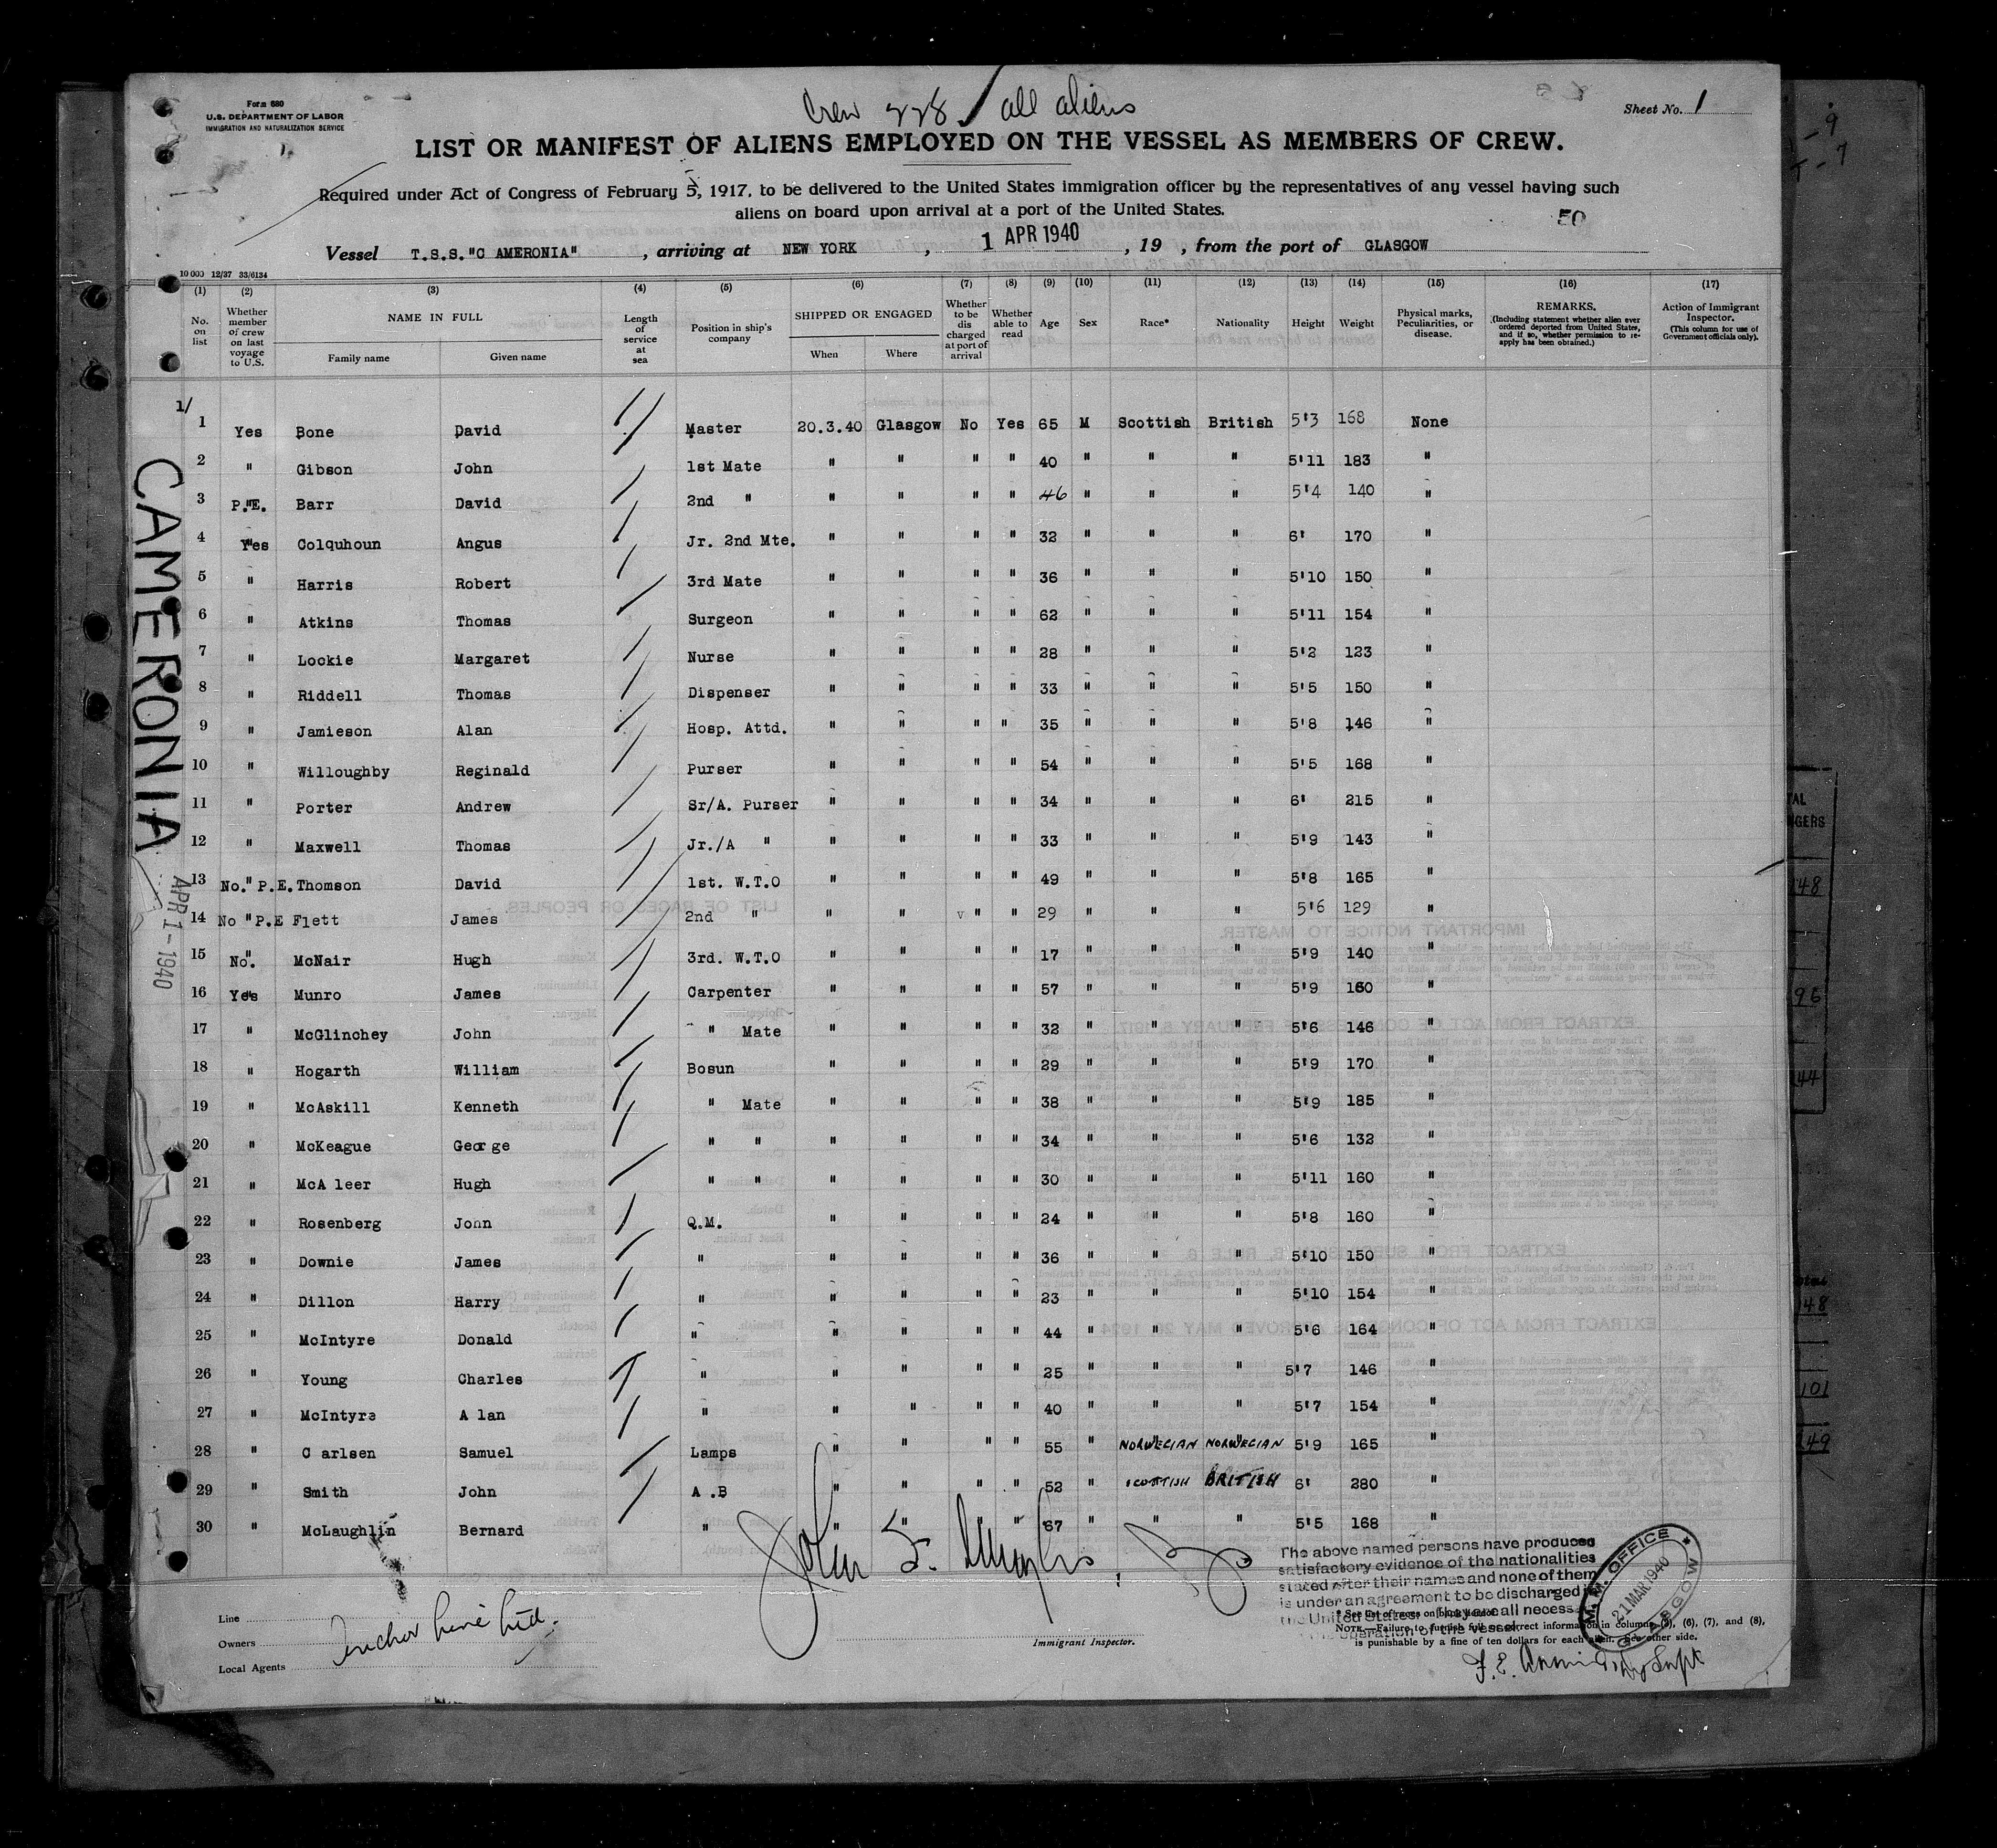 Crew 228 / all aliens
Form 680
U.S. DEPARTMENT OF LABOR
IMMIGRATION AND NATURALIZATION SERVICE
Sheet No. 1
LIST OR MANIFEST OF ALIENS EMPLOYED ON THE VESSEL AS MEMBERS OF CREW.
Required under Act of Congress of February 5, 1917, to be delivered to the United States immigration officer by the representatives of any vessel having such
aliens on board upon arrival at a port of the United States.
50
Vessel T.S.S."C AMERONIA", arriving at NEW YORK, 1 APR 1940, 19 , from the port of GLASGOW
10 000 12/37 33/6134
(1) (2) (3) (4) (5) (6) (7) (8) (9) (10) (11) (12) (13) (14) (15) (16) (17)
No. on list
Whether member of crew on last voyage to U.S.
NAME IN FULL
Family name
Given name
Length of service at sea
Position in ship's company
SHIPPED OR ENGAGED
When
Where
Whether to be dis charged at port of arrival
Whether able to read
Age
Sex
Race*
Nationality
Height
Weight
Physical marks, Peculiarities, or disease.
REMARKS.
(Including statement whether alien ever ordered deported from United States, and if so, whether permission to re-apply has been obtained.)
Action of Immigrant Inspector.
(This column for use of Government officials only).
1/
1 Yes Bone David Master 20.3.40 Glasgow No Yes 65 M Scottish British 5'3 168 None
2 " Gibson John 1st Mate " " " " 40 " " " 5'11 183 "
3 P.E. Barr David 2nd " " " " " 46 " " " 5'4 140 "
4 Yes Colquhoun Angus Jr. 2nd Mte. " " " " 32 " " " 6' 170 "
5 " Harris Robert 3rd Mate " " " " 36 " " " 5'10 150 "
6 " Atkins Thomas Surgeon " " " " 62 " " " 5'11 154 "
7 " Lockie Margaret Nurse " " " " 28 " " " 5'2 123 "
8 " Riddell Thomas Dispenser " " " " 33 " " " 5'5 150 "
9 " Jamieson Alan Hosp. Attd. " " " " 35 " " " 5'8 146 "
10 " Willoughby Reginald Purser " " " " 54 " " " 5'5 168 "
11 " Porter Andrew Sr/A. Purser " " " " 34 " " " 6' 215 "
12 " Maxwell Thomas Jr./A " " " " " 33 " " " 5'9 143 "
13 No." P.E. Thomson David 1st. W.T.O " " " " 49 " " " 5'8 165 "
14 No " P.E Flett James 2nd " " " v " " 29 " " " 5'6 129 "
15 No." McNair Hugh 3rd. W.T.O " " " " 17 " " " 5'9 140 "
16 Yes Munro James Carpenter " " " " 57 " " " 5'9 160 "
17 " McGlinchey John " Mate " " " " 32 " " " 5'6 146 "
18 " Hogarth William Bosun " " " " 29 " " " 5'9 170 "
19 " McAskill Kenneth " Mate " " " " 38 " " " 5'9 185 "
20 " McKeague Geor ge " " " " " " 34 " " " 5'6 132 "
21 " McA leer Hugh " " " " " " 30 " " " 5'11 160 "
22 " Rosenberg John Q.M. " " " " 24 " " " 5'8 160 "
23 " Downie James " " " " " 36 " " " 5'10 150 "
24 " Dillon Harry " " " " " 23 " " " 5'10 154 "
25 " McIntyre Donald " " " " " 44 " " " 5'6 164 "
26 " Young Charles " " " " " 25 " " " 5'7 146 "
27 " McIntyre A lan " " " " " 40 " " " 5'7 154 "
28 " C arlsen Samuel Lamps " " " " 55 " NORWEGIAN NORWEGIAN 5'9 165 "
29 " Smith John A .B " " " " 52 " SCOTTISH BRITISH 6' 280 "
30 " McLaughlin Bernard " " " " " 67 " " " 5'5 168 "
CAMERONIA
APR 1-1940
The above named persons have produced
satisfactory evidence of the nationalities
stated after their names and none of them
is under an agreement to be discharged in
the United States. They are all necess
operation of the vessel.
M. M. OFFICE
21 MAR 1940
GLASGOW
Line
Owners Anchor Line Ltd.
Local Agents
Immigrant Inspector.
* See list of races on back hereof.
NOTE.—Failure to furnish full or correct information in columns (5), (6), (7), and (8),
is punishable by a fine of ten dollars for each alien. See other side.